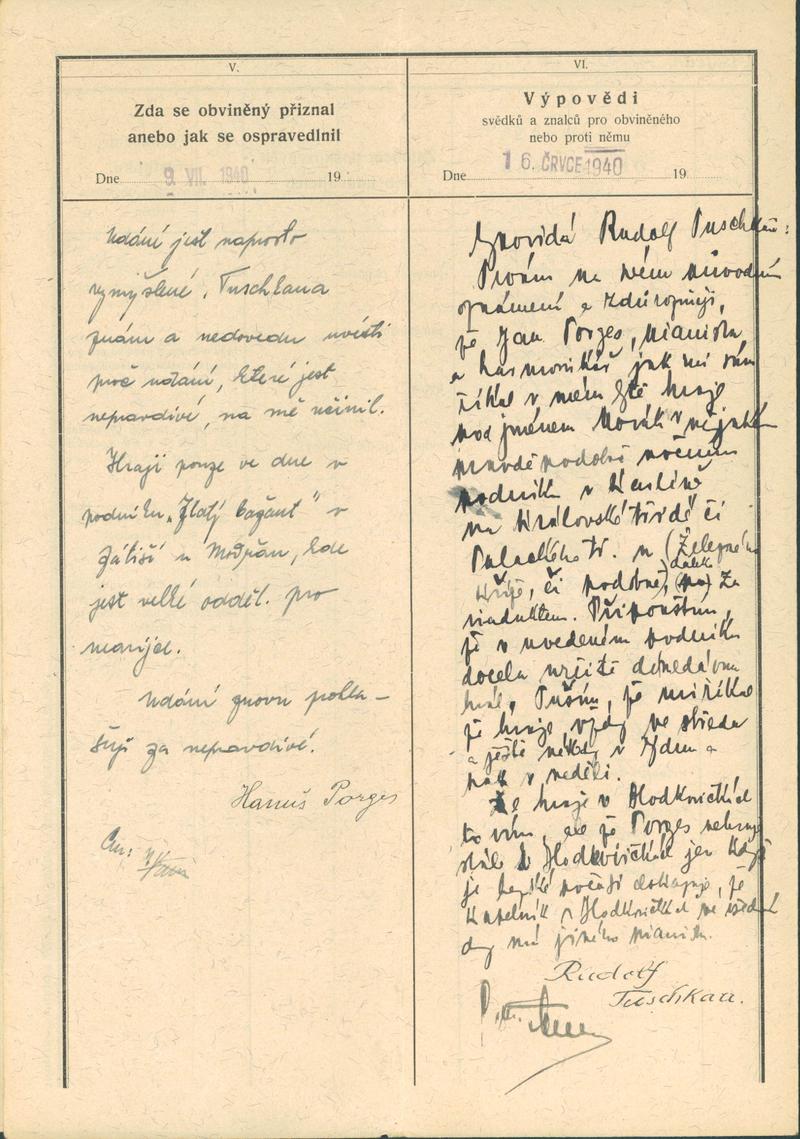 V.
Zda se obviněný přiznal
anebo jak se ospravedlnil
Dne 9. VII. 1940 19
Udání jest naprosto
vymyšlené. Tuschkaua
znám a nedovedu uvésti
proč udání, které jest
nepravdivé, na mě učinil.
Hraji pouze ve dne v
podniku „Zlatý bažant" v
Zátiší u Modřan, kde
jest velké odděl. pro
neárijce.
Udání znovu prohla-
šuji za nepravdivé.
Hanuš Porges
VI.
Výpovědi
svědků a znalců pro obviněného
nebo proti němu
Dne 16. ČRVCE 1940 19
Zpovídá Rudolf Tuschkau:
Trvám na svém původním
oznámení a zdůrazňuji,
že Jan Porges, pianista
a harmonikář jak mi sám
říkal v mém bytě hraje
pod jménem Novák v nějakém
pravděpodobně nočním
podniku v Karlíně
na Královské třídě či
Palackého tř. u (Železného
kříže, či podobně), daleko za
viaduktem. Připouštím,
že v uvedeném podniku
docela určitě donedávna
hrál. Tuším, že mi říkal
že hraje vždy ve středu
a ještě někdy v týdnu a
pak v neděli.
Že hraje v Hodkovičkách
to vím, ale že Porges nehraje
stále v Hodkovičkách jen když
je hezké počasí dokazuje, že
kapelník v Hodkovičkách ve všední
dny má jiného pianistu.
Rudolf
Tuschkau.